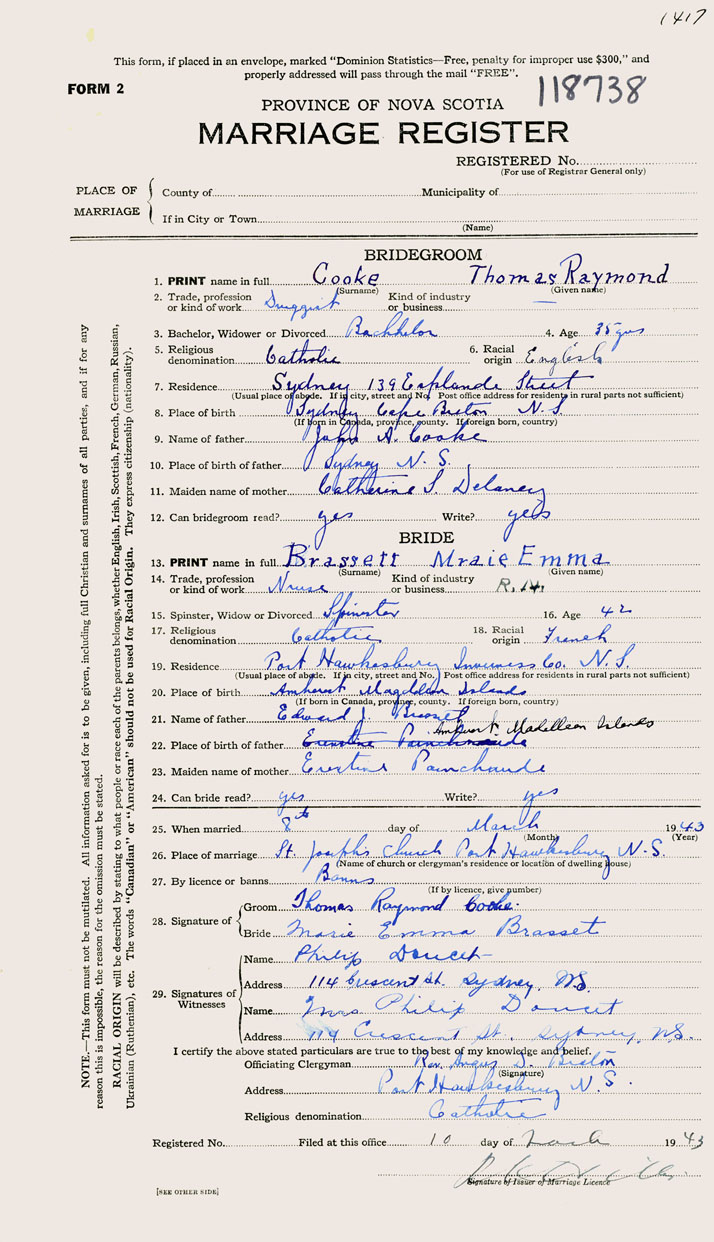 1417
This form, if placed in an envelope, marked "Dominion Statistics—Free, penalty for improper use $300," and
properly addressed will pass through the mail "FREE".
FORM 2
118738
PROVINCE OF NOVA SCOTIA
MARRIAGE REGISTER
REGISTERED No.
(For use of Registrar General only)
PLACE OF MARRIAGE
County of Municipality of
If in City or Town
(Name)
BRIDEGROOM
1. PRINT name in full Cooke Thomas Raymond
(Surname) (Given name)
2. Trade, profession or kind of work Druggist Kind of industry or business —
3. Bachelor, Widower or Divorced Bachhelor 4. Age 35 yrs
5. Religious denomination Catholic 6. Racial origin English
7. Residence Sydney 139 Esplande Street
(Usual place of abode. If in city, street and No. Post office address for residents in rural parts not sufficient)
8. Place of birth Sydney Cape Breton N.S.
(If born in Canada, province, county. If foreign born, country)
9. Name of father John A. Cooke
10. Place of birth of father Sydney N.S.
11. Maiden name of mother Catherine S. Delaney
12. Can bridegroom read? yes Write? yes
BRIDE
13. PRINT name in full Brassett Mraie Emma
(Surname) (Given name)
14. Trade, profession or kind of work Nurse Kind of industry or business R.N.
15. Spinster, Widow or Divorced Spinster 16. Age 42
17. Religious denomination Catholic 18. Racial origin French
19. Residence Port Hawkesbury Inverness Co. N.S.
(Usual place of abode. If in city, street and No. Post office address for residents in rural parts not sufficient)
20. Place of birth Amherst Magdelen Islands
(If born in Canada, province, county. If foreign born, country)
21. Name of father Edward J. Brasset
22. Place of birth of father Ernestine Painchaude Amherst Madellean Islands
23. Maiden name of mother Erestine Painchaude
24. Can bride read? yes Write? yes
25. When married 8th day of March 1943
(Month) (Year)
26. Place of marriage St. Joseph's Church Port Hawkesbury N.S.
(Name of church or clergyman's residence or location of dwelling house)
27. By licence or banns Banns
(If by licence, give number)
28. Signature of
Groom Thomas Raymond Cooke.
Bride Marie Emma Brasset
29. Signatures of Witnesses
Name Philip Doucet
Address 114 Crescent St. Sydney, N.S.
Name Mrs. Philip Doucet
Address 114 Crescent St., Sydney, N.S.
I certify the above stated particulars are true to the best of my knowledge and belief.
Officiating Clergyman Rev. Angus D. Biston
(Signature)
Address Port Hawkesbury N.S.
Religious denomination Catholic
Registered No. Filed at this office 10 day of March 1943
Signature of Issuer of Marriage Licence
[SEE OTHER SIDE]
NOTE.—This form must not be mutilated. All information asked for is to be given, including full Christian and surnames of all parties, and if for any
reason this is impossible, the reason for the omission must be stated.
RACIAL ORIGIN will be described by stating to what people or race each of the parents belongs, whether English, Irish, Scottish, French, German, Russian,
Ukrainian (Ruthenian), etc. The words "Canadian" or "American" should not be used for Racial Origin. They express citizenship (nationality).